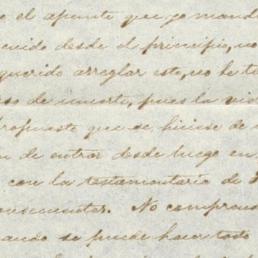 o el apunte que yo mand
cuido desde el principio, no
querido arreglar esto, no he t
so de muerto, pues la vi
propuesto que se hiciese de
n de entrar desde luego en
con la testamentaría de
consecuentes. No compren
ando se puede hacer todo